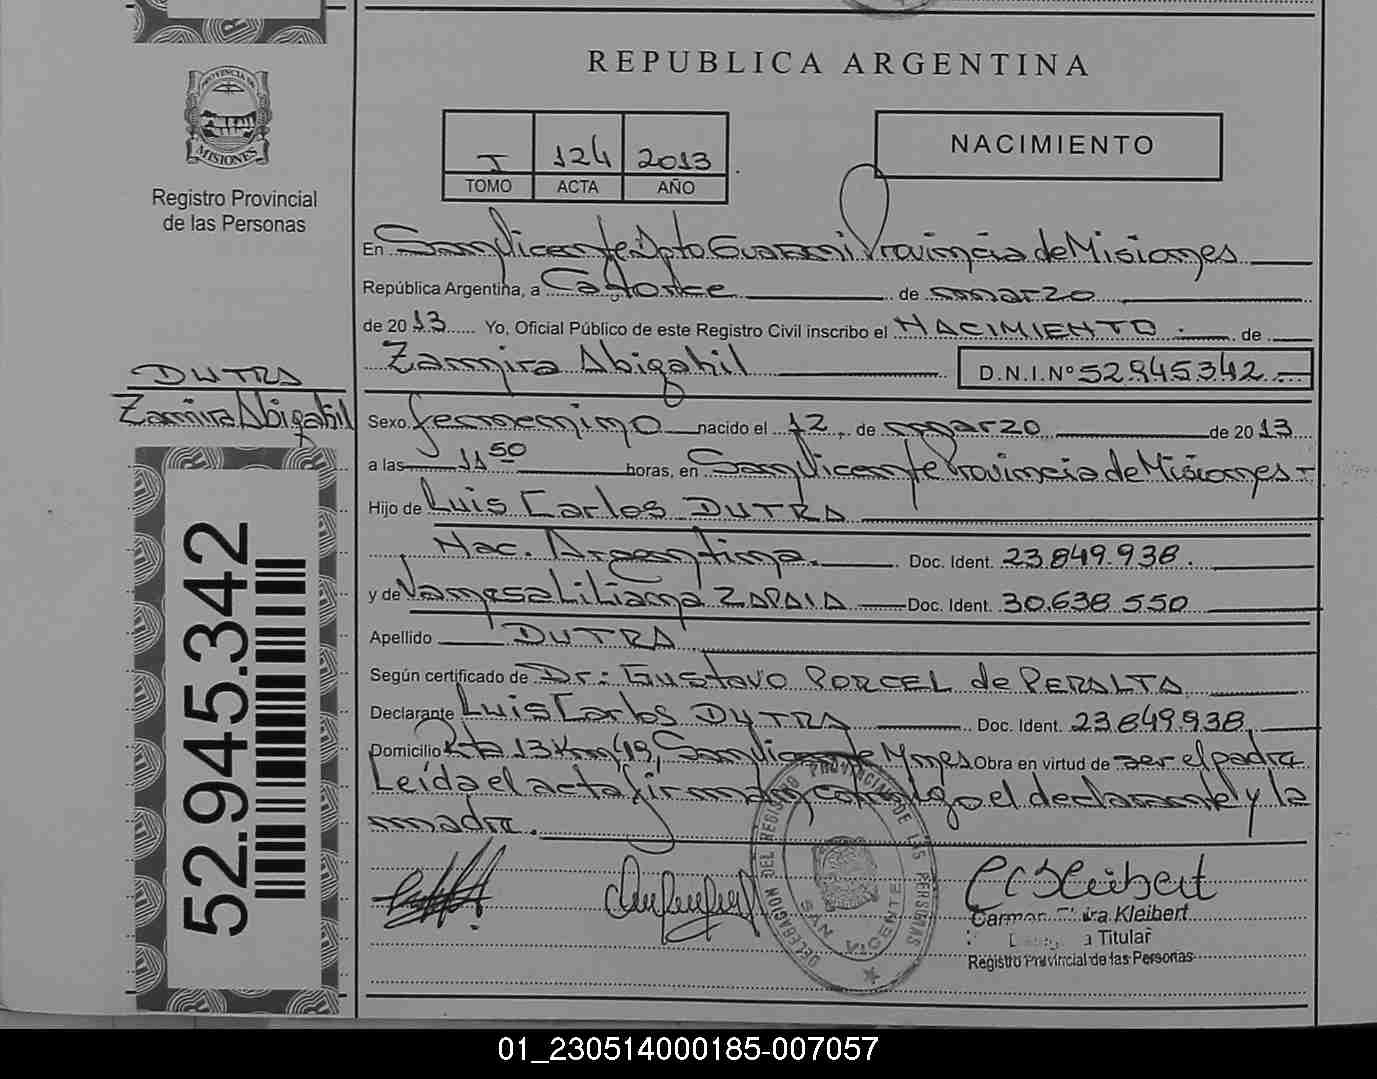 REPUBLICA ARGENTINA
PROVINCIA DE
MISIONES
Registro Provincial
de las Personas
I 124 2013
TOMO ACTA AÑO
NACIMIENTO
En San Vicente Dpto Guaraní Provincia de Misiones
República Argentina, a Catorce de marzo
de 2013 Yo, Oficial Público de este Registro Civil inscribo el NACIMIENTO de
Zamira Abigahil D.N.I.Nº 52.945.342
DUTRA
Zamira Abigahil
Sexo femenino nacido el 12 de marzo de 2013
a las 11 50 horas, en San Vicente Provincia de Misiones
Hijo de Luis Carlos DUTRA
Nac. Argentina. Doc. Ident. 23.849.938.
y de Vanesa Liliana ZAPAIA Doc. Ident. 30.638.550
Apellido DUTRA
Según certificado de Dr: Gustavo PORCEL de PERALTA
Declarante Luis Carlos DUTRA Doc. Ident. 23849.938.
Domicilio Rta 13 Km 49, San Vicente Mnes Obra en virtud de ser el padre
Leída el acta firman conmigo el declarante y la
madre.
52.945.342
DELEGACION DEL REGISTRO PROVINCIAL DE LAS PERSONAS
SAN VICENTE
Kleibert
Titular
Registro Provincial de las Personas
01_230514000185-007057